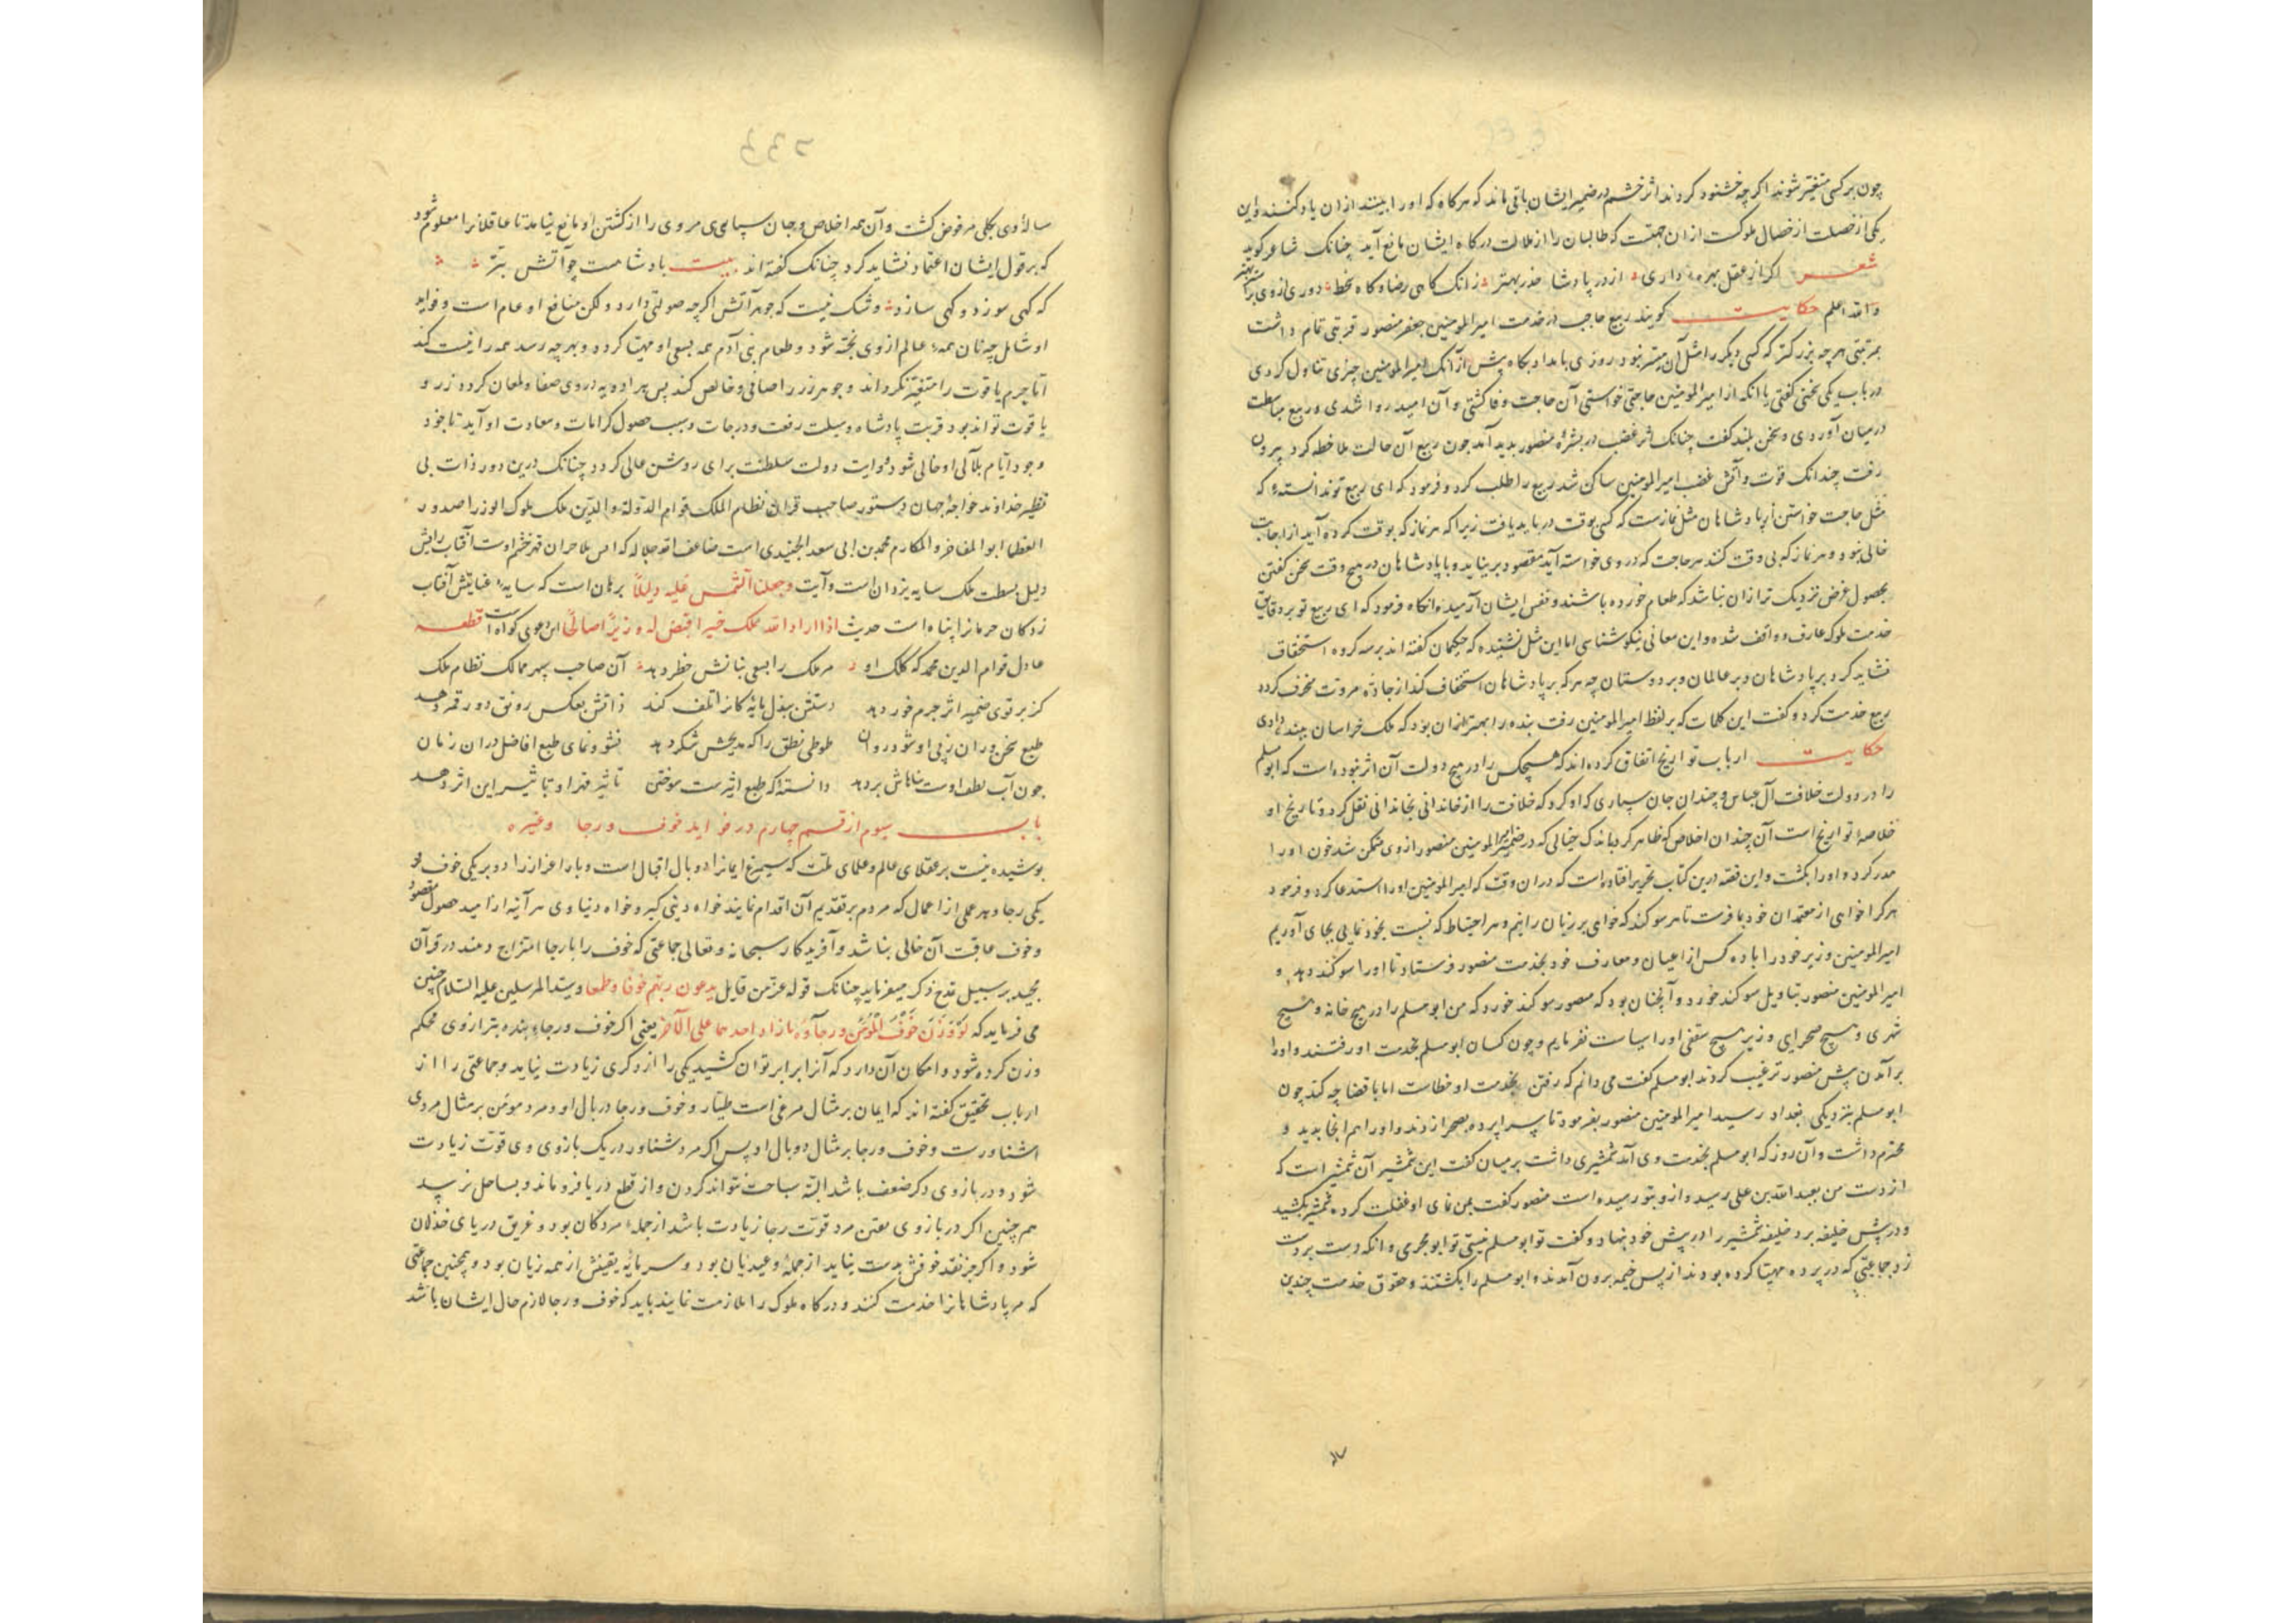 چون بر کسی متغیر شوند اکرچه خشنود کردند اثر خشم در ضمیر ایشان باقی ماند که هرکاه که او را بینند از ان یاد کنند و این
یکی از خصلت از خصال ملوکست از ان جهت که طالبان را از ملالت درکاه ایشان مانع آید چنانک شاعر کوید
شعر اکر از عقل بهره داری از در پادشا حذر بهتر زانک کاهی رضا و کاه سخط دوری از وی
والله اعلم حکایت کویند ربیع حاجب در خدمت امیرالمومنین جعفر منصور قربتی تمام داشت
بمرتبتی هرچه بزرکتر که کسی دیکر را مثل آن میسر نبود روزی بامداد بکاه پیش از آنک امیرالمومنین چیزی تناول کردی
در باب یکی سخنی کفتی یا انکه از امیرالمومنین حاجتی خواستی آن حاجت وفا کشتی و آن امید روا شدی و ربیع مباسطت
در میان آوردی و سخن بلند کفت چنانک اثر غضب در بشرهٔ منصور بدید آمد چون ربیع آن حالت ملاحظه کرد بیرون
رفت چندانک قوت و آتش غضب امیرالمومنین ساکن شد ربیع را طلب کرد و فرمود که ای ربیع تو ندانستهٔ که
مثل حاجت خواستن از پادشاهان مثل نمازست که کسی بوقت در باید یافت زیرا که هر نماز که بوقت کرده آید از اجابت
خالی نبود و هر نماز که بی وقت کند هر حاجت که در وی خواسته آید مقصود بر نیاید و با پادشاهان در هیچ وقت سخن کفتن
بحصول غرض نزدیک تر از ان نباشد که طعام خورده باشند و نفس ایشان آرمیده وانکاه فرمود که ای ربیع تو بر دقایق
خدمت ملوک عارف و واقف شده و این معانی نیکو شناسی اما این مثل نشنیدهٔ که حکیمان کفته اند بر سه کروه استخفاف
نشاید کرد بر پادشاهان و بر عالمان و بر دوستان چه هرکه بر پادشاهان استخفاف کند از جادهٔ مروت منحرف کردد
ربیع خدمت کرد و کفت این کلمات که بر لفظ امیرالمومنین رفت بنده را بهتر از ان بود که ملک خراسان ببنده دادی
حکایت ارباب تواریخ اتفاق کرده اند که هیچکس را در هیچ دولت آن اثر نبوده است که ابومسلم
را در دولت خلافت آل عباس و چندان جان سپاری که او کرد که خلافت را از خاندانی بخاندانی نقل کرد و تاریخ او
خلاصهٔ تواریخ است آن چندان اخلاص که ظاهر کرد باندک خیالی که در ضمیر امیرالمومنین منصور از وی متمکن شد خون او را
هدر کرد و او را بکشت و این قصه درین کتاب تحریر افتاده است که دران وقت که امیرالمومنین او را استدعا کرد و فرمود
هرکرا خواهی از معتمدان خود بما فرست تا هر سوکند که خواهی بر زبان رانیم و هر احتیاط که نسبت بخود نمایی بجای آوریم
امیرالمومنین وزیر خود را با ده کس از اعیان و معارف خود بخدمت منصور فرستاد تا او را سوکند دهد و
امیرالمومنین منصور بتاویل سوکند خورد و آنچنان بود که منصور سوکند خورد که من ابومسلم را در هیچ خانه و هیچ
شهری و هیچ صحرای و زیر هیچ سقفی او را سیاست نفرمایم و چون کسان ابومسلم بخدمت او رفتند و او را
بر آمدن پیش منصور ترغیب کردند ابومسلم کفت می دانم که رفتن بخدمت او خطاست اما با قضا چه کند چون
ابومسلم بنزدیکی بغداد رسید امیرالمومنین منصور بفرمود تا سراپرده بصحرا زدند و او را هم انجا بدید و
محترم داشت و آن روز که ابومسلم بخدمت وی آمد شمشیری داشت بر میان کفت این شمشیر آن شمشیر است که
از دست من بعبدالله بن علی رسید و از و بتو رسیده است منصور کفت بمن نمای او غفلت کرده شمشیر بکشید
و در پیش خلیفه برد خلیفه شمشیر را در پیش خود بنهاد و کفت تو ابومسلم نیستی تو ابومجرمی وانکه دست بر دست
زد جماعتی که در پرده مهیا کرده بودند از پس خیمه برون آمدند و ابومسلم را بکشتند و حقوق خدمت چندین
ساله
سالهٔ وی بکلی مرفوض کشت و آن همه اخلاص و جان سپاری مروی را از کشتن او مانع نیامد تا عاقلانرا معلوم شود
که بر قول ایشان اعتماد نشاید کرد چنانک کفته اند بیت پادشا هست چو آتش بتر
که کهی سوزد و کهی سازد و شک نیست که جوهر آتش اکرچه صولتی دارد و لکن منافع او عام است و فواید
او شامل چه نان همهٔ عالم از وی پخته شود و طعام بنی آدم همه بسعی او مهیا کردد و بهرچه رسد همه را نیست کند
اما جرم یاقوت را متغیر نکرداند و جوهر زر را صافی و خالص کند پس هر ادویه در وی صفا و لمعان کردد زر و
یاقوت تواند بود قربت پادشاه وسیلت رفعت و درجات و سبب حصول کرامات و سعادت او آید تا خود
وجود ایام بلآلی او حالی شود و رایت دولت سلطنت برای روشن عالی کردد چنانک درین دور ذات بی
نظیر خداوند خواجهٔ جهان دستور صاحب قران نظام الملک قوام الدولة والدین ملک ملوک الوزرا صدور
العظما ابوالمفاخر والمکارم محمد بن ابی سعد الجنیدی است ضاعف الله جلاله که قهر خشم اوست آفتاب رایش
دلیل بسطت ملک سایه یزدان است و آیت وجعلنا الشمس علیه دلیلاً برهان است که سایهٔ عنایتش آفتاب
زدکان حرمانرا پناه است حدیث اذا اراد الله بملک خیراً قیض له وزیراً صالحاً این دعوی کواه است قطعه
عادل قوام الدین محمد که کلک او مر ملک را بسعی بنانش خطر دهد آن صاحب سپهر ممالک نظام ملک
کز بر توی ضمیر اثر جرم خور دهد دستش ببذل مایهٔ کانرا تلف کند ذاتش بعکس رونق دور قمر دهد
طبع سخن وران ز پی او شود روان طوطی نطق را که مدیحش شکر دهد نشو و نمای طبع افاضل دران زمان
چون آب لطف اوست بر دهد دانسته که طبع اثیرست سوختن تاثیر قهر او بتاثیر این اثر دهد
باب سیوم از قسم چهارم در فواید خوف و رجا وغیره
پوشیده نیست بر عقلای عالم و علمای ملت که سیمرغ ایمانرا دو بال اقبال است و باز اعزاز را دو پر یکی خوف و
یکی رجا و هر عملی از اعمال که مردم بر تقدیم آن اقدام نمایند خواه دینی کیر و خواه دنیاوی هر آینه از امید حصول مقصود
و خوف عاقبت آن خالی نباشد و آفریدکار سبحانه و تعالی جماعتی که خوف را با رجا امتزاج دهند در قرآن
مجید بر سبیل مدح ذکر میفرماید چنانک قوله عز من قایل یدعون ربهم خوفا و طمعا و سید المرسلین علیه السلام چنین
می فرماید که لو وزن خوف المؤمن ورجاؤه ما زاد احدهما علی الآخر یعنی اکر خوف و رجاء بنده بترازوی محکم
وزن کرده شود و امکان آن دارد که آنرا برابر توان کشید یکی را از دکری زیادت نیاید و جماعتی را از
ارباب تحقیق کفته اند که ایمان بر مثال مرغی است طیار و خوف و رجا دو بال او و مرد مومن بر مثال مردی
آشناورست و خوف و رجا بر مثال دو بال او پس اکر مرد شناور در یک بازوی وی قوت زیادت
شود و در بازوی دکر ضعف باشد البته سباحت نتواند کردن و از قطع دریا فرو ماند و بساحل نرسد
هم چنین اکر در بازوی یقین مرد قوت رجا زیادت باشد از جملهٔ مردکان بود و غریق دریای خذلان
شود و اکر جز نقد خوفش بدست نیاید از جملهٔ وعیدیان بود و سرمایهٔ یقینش از همه زیان بود و همچنین جماعتی
که مر پادشاهانرا خدمت کنند و درکاه ملوک را ملازمت نمایند باید که خوف و رجا لازم حال ایشان باشد